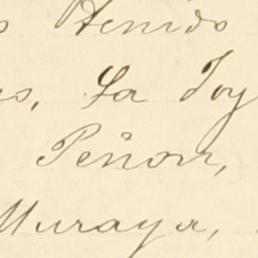 Atenido
es, La Joy
Peñon,
Muraya,